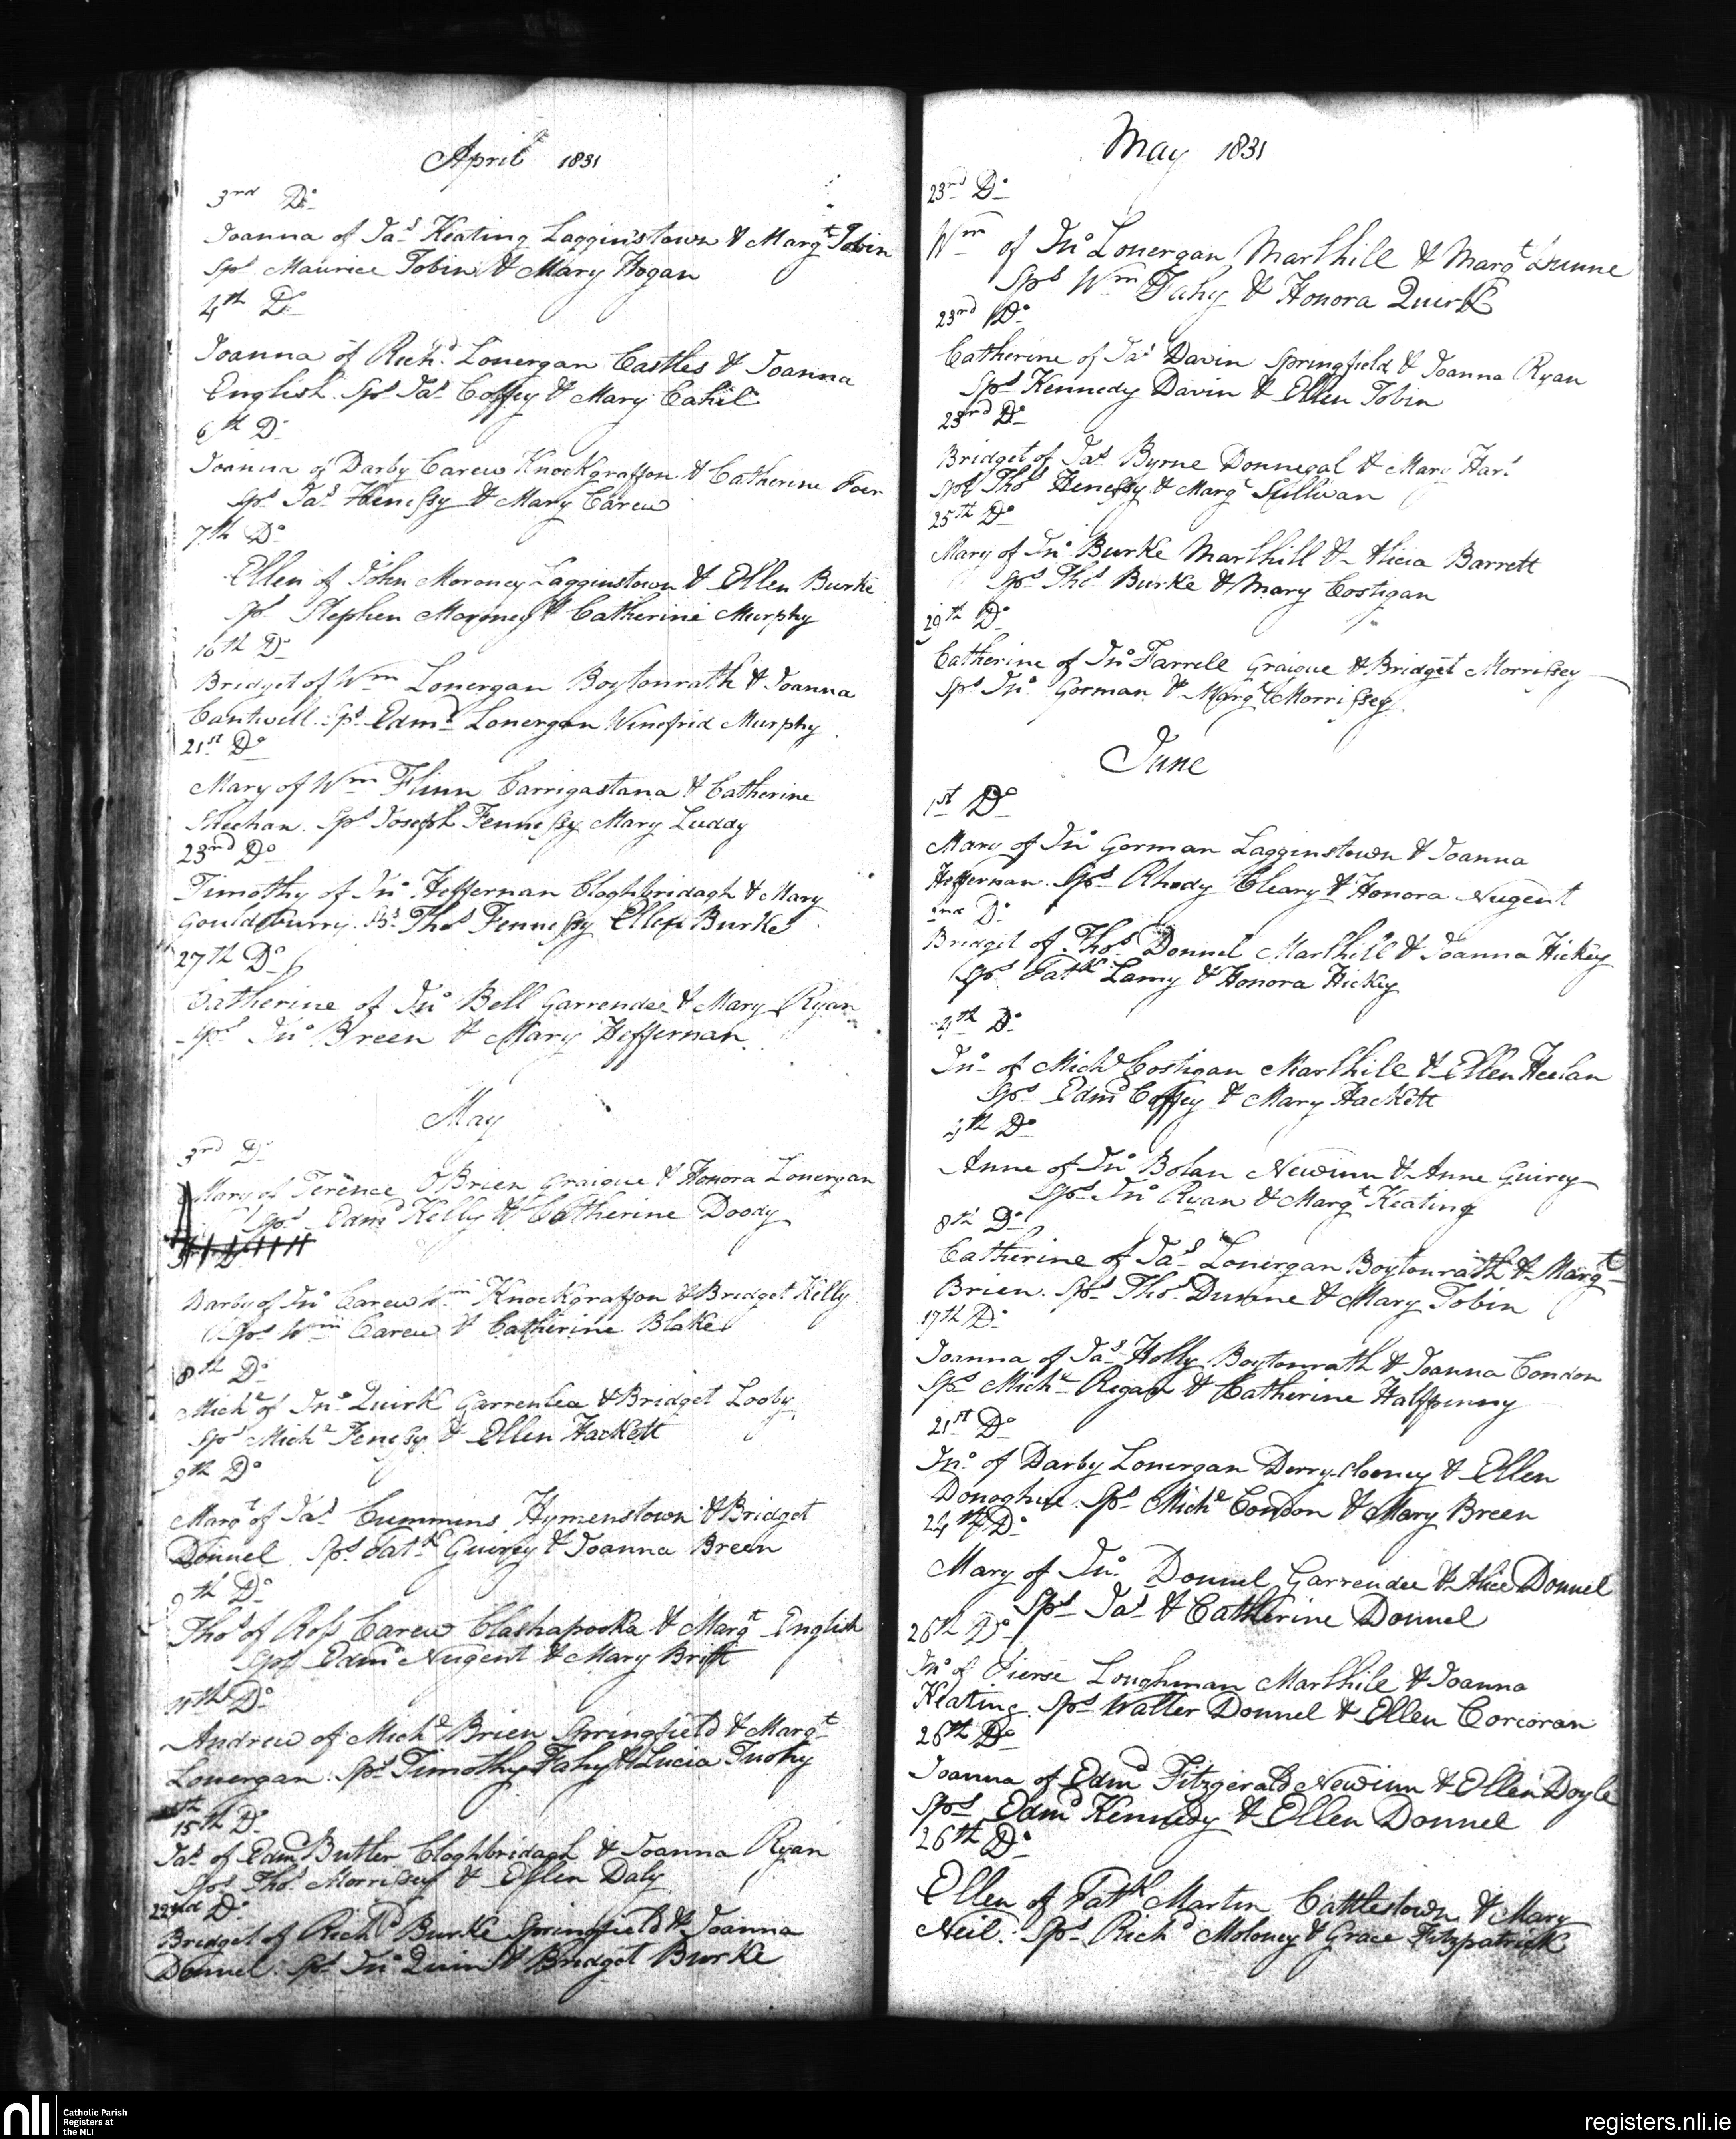 April 1831
3rd Do
Joanna of Jas Keating Lagginstown & Margt Tobin
Sps Maurice Tobin & Mary Hogan
4th Do
Joanna of Richd Lonergan Castles & Joanna
English. Sps Jas Coffey & Mary Cahil
6th Do
Joanna of Darby Carew Knockgraffon & Catherine
Sps Jas Henessy & Mary Carew
7th Do
Ellen of John Moroney Lagginstown & Ellen Burke
Sps Stephen Moroney & Catherine Murphy
16th Do
Bridget of Wm Lonergan Boytonrath & Joanna
Cantwell. Sps Edmd Lonergan Winefrid Murphy
21st Do
Mary of Wm Flinn Carrigastana & Catherine
Sheehan. Sps Joseph Fennessy Mary Luddy
23rd Do
Timothy of Jno Heffernan Cloghbridagh & Mary
Gouldsburry. Sps Thos Fennessy Ellen Burke
27th Do
Catherine of Jno Bell Garrendee & Mary Ryan
Sps Jno Breen & Mary Heffernan
May
3rd Do
Mary of Terence OBrien Graigue & Honora Lonergan
Sps Edmd Kelly & Catherine Doody
Darby of Jno Carew Knockgraffon & Bridget Kelly
Sps Wm Carew & Catherine Blake
8th Do
Michl of Jno Quirk Garrenlea & Bridget Looby
Sps Michl Fenessy & Ellen Hackett
9th Do
Margt of Jas Cummins Hymenstown & Bridget
Donnel. Sps Patk Guirey & Joanna Breen
9th Do
Thos of Ross Carew Clashapooka & Margt English
Sps Edmd Nugent & Mary Britt
11th Do
Andrew of Michl Brien Springfield & Margt
Lonergan. Sps Timothy Fahy & Lucia Tuohy
15th Do
Jas of Edmd Butler Cloghbridagh & Joanna Ryan
Sps Thos Morrissey & Ellen Daly
22nd Do
Bridget of Richd Burke Springfield & Joanna
Donnel. Sps Jno Quin & Bridget Burke
May 1831
23rd Do
Wm of Jno Lonergan Marlhill & Margt Dunne
Sps Wm Fahy & Honora Quirk
23rd Do
Catherine of Jas Davin Springfield & Joanna Ryan
Sps Kennedy Davin & Ellen Tobin
23rd Do
Bridget of Jas Byrne Donnegal & Mary
Sps Thos Henessy & Margt Sullivan
25th Do
Mary of Jno Burke Marlhill & Alicia Barrett
Sps Thos Burke & Mary Costigan
29th Do
Catherine of Jno Farrell Graigue & Bridget Morrissey
Sps Jno Gorman & Margt Morrissey
June
1st Do
Mary of Jno Gorman Lagginstown & Joanna
Heffernan. Sps Rhody Cleary & Honora Nugent
2nd Do
Bridget of Thos Donnel Marlhill & Joanna Hickey
Sps Patk Lamy & Honora Hickey
4th Do
Jno of Michl Costigan Marlhill & Ellen Heelan
Sps Edmd Coffey & Mary Hackett
5th Do
Anne of Jno Bolan Newinn & Anne Guirey
Sps Jno Ryan & Margt Keating
8th Do
Catherine of Jas Lonergan Boytonrath & Margt
Brien. Sps Thos Dunne & Mary Tobin
17th Do
Joanna of Jas Holly Boytonrath & Joanna Condon
Sps Michl Regan & Catherine Halfpenny
21st Do
Jno of Darby Lonergan Derryclooney & Ellen
Donoghue. Sps Michl Condon & Mary Breen
24th Do
Mary of Jno Donnel Garrendee & Alice Donnel
Sps Jas & Catherine Donnel
26th Do
Jno of Pierse Loughman Marlhill & Joanna
Keating. Sps Walter Donnel & Ellen Corcoran
26th Do
Joanna of Edmd Fitzgerald Newinn & Ellen Doyle
Sps Edmd Kennedy & Ellen Donnel
26th Do
Ellen of Patk Martin Cattlestown & Mary
Neil. Sps Richd Moloney & Grace Fitzpatrick
nli Catholic Parish
Registers at
the NLI
registers.nli.ie